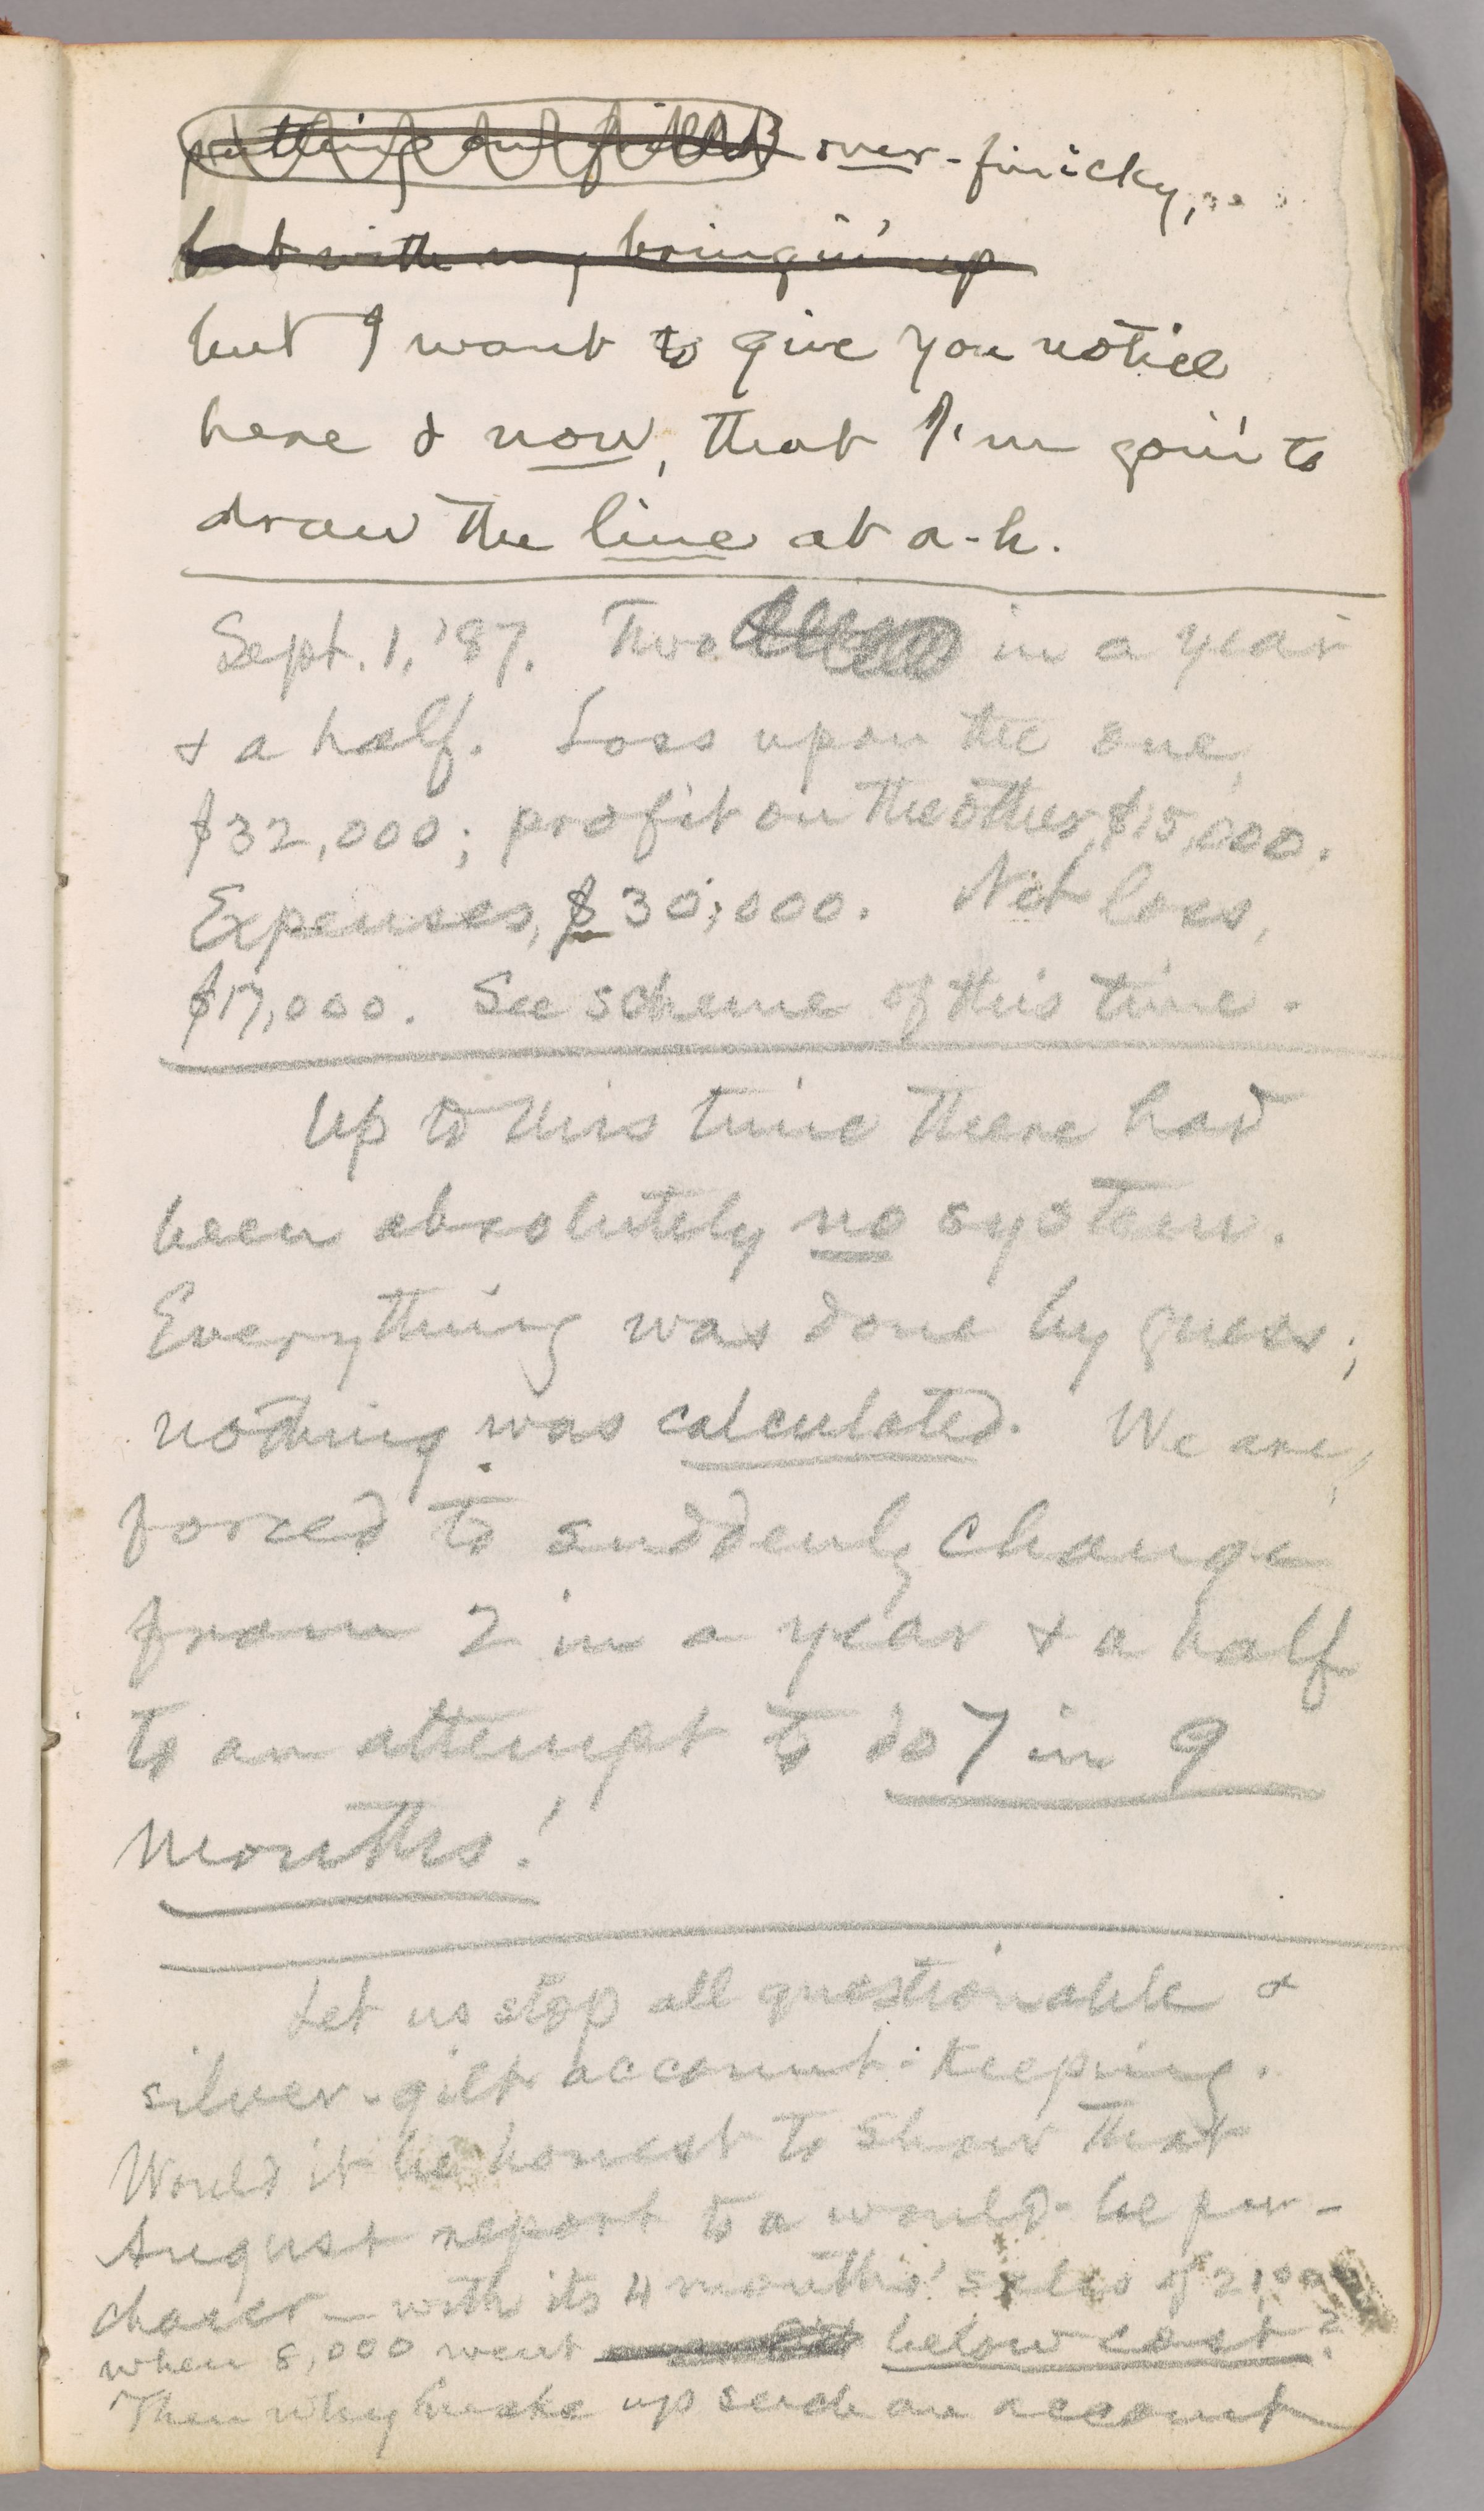 over-finicky,
but with my bringin' up
but I want to give you notice
here & now, that I'm goin' to
draw the line at a-h.
Sept. 1, '87. Two in a year
& a half. Loss upon the one,
$32,000; profit on the other, $15,000.
Expenses, $30,000. Net loss,
$17,000. See scheme of this time.
Up to this time there had
been absolutely no system.
Everything was done by guess;
nothing was calculated. We are,
forced to suddenly change
from 2 in a year & a half
to an attempt to do 7 in 9
months!
Let us stop all questionable &
silver-gilt account-keeping.
Would it be honest to show that
August report to a would-be pur-
chaser — with its 4 months' sales of
when 8,000 went below cost?
Then why make up such an account